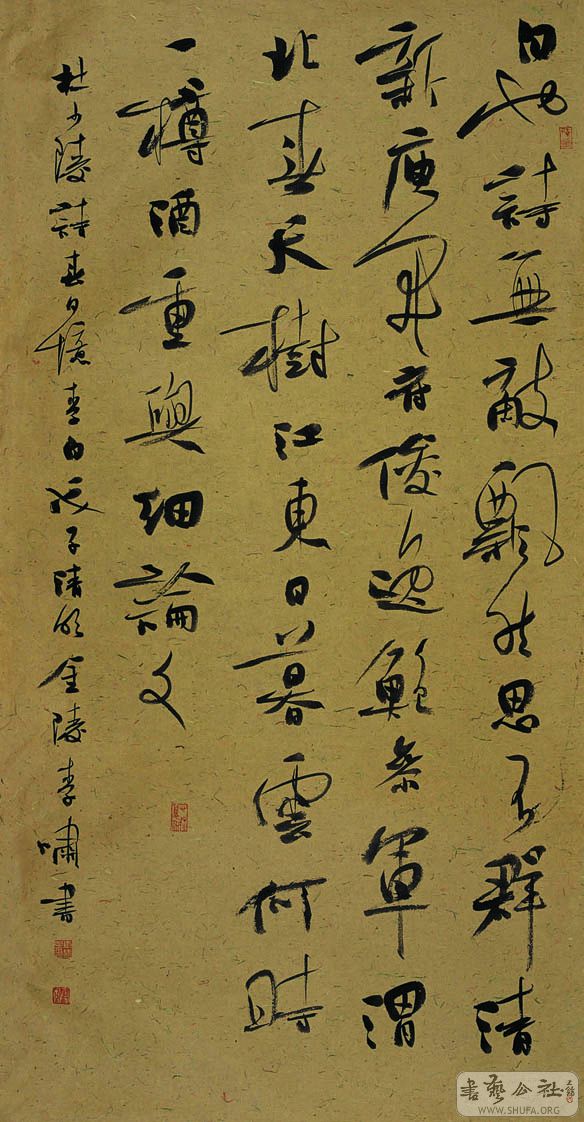 白也詩無敵飄然思不群清
新庾開府俊逸鮑參軍渭
北春天樹江東日暮雲何時
一樽酒重與細論文
杜少陵詩春日憶李白戊子清明金陵李嘯書
書藝公社
WWW.SHUFA.ORG